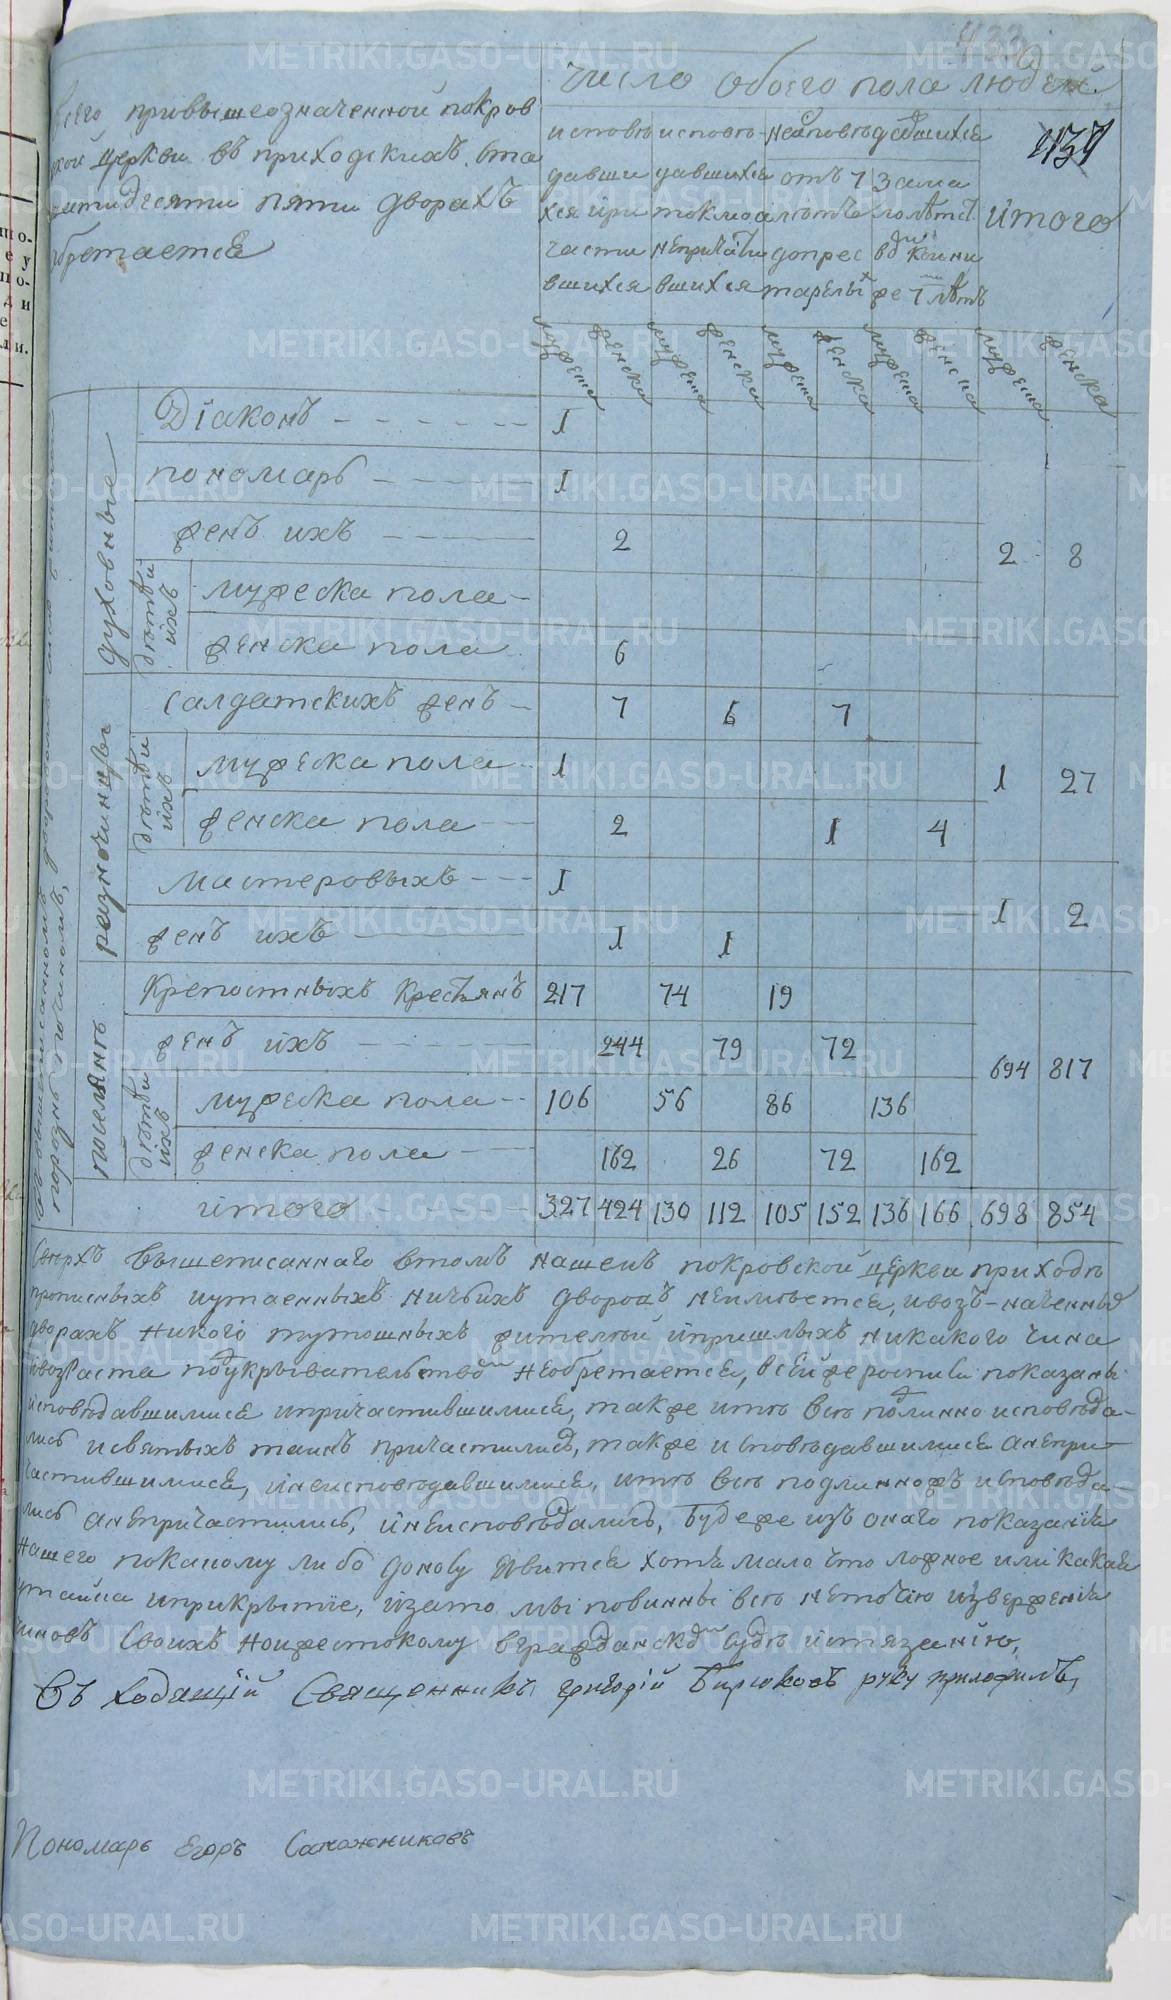 число обоего пола людей
Всего привышеозначенной покров
ской церкви въ приходскихъ ста
пятидесяти пяти дворахъ
обретается
434
исповѣ исповѣ неисповѣдавшихся
давши давшихся отъ 7 зама
хся и при токмо а лѣтъ лолѣтст
части непричасти допрес вомъ кои ни
вшихся вшихся тарелыхъ же 7 лѣтъ
итого
мужеска женска мужеска женска мужеска женска мужеска женска мужеска женска
духовные
Діаконъ 1
пономарь 1
женъ ихъ 2 2 8
дѣтей ихъ
мужеска пола
женска пола 6
разночинцы
салдатскихъ женъ 7 6 7
дѣтей ихъ
мужеска пола 1 1 27
женска пола 2 1 4
мастеровыхъ 1
женъ ихъ 1 1 1 2
поселянъ
Крепостныхъ Крестьянъ 217 74 19
женъ ихъ 244 79 72 694 817
дѣтей ихъ
мужеска пола 106 56 86 136
женска пола 162 26 72 162
итого 327 424 130 112 105 152 136 166 698 854
Сверхъ вышеписаннаго втомъ нашемъ покровской церкви приходѣ
прописныхъ иутаенныхъ ничьихъ дворовъ неимѣется, ивозъ-наченныхъ
дворахъ никого тутошныхъ жителей, ипришлыхъ никакого чина
ивозраста подукрывательствомъ необретается, всейже росписи показаны
исповѣдавшимися ипричастившимися, также итѣ всѣ подлинно исповѣда-
лись исвятыхъ таинъ причастились, также исповѣдавшимися анепри-
частившимися, инеисповѣдавшимися, итѣ всѣ подлинножъ исповѣда-
лись анепричастились, инеисповѣдались, Будеже изъ онаго показанія
нашего покакому либо доносу явится хотя мало что ложное или какая
утайка иприкрытіе, изато мы повинны всѣ неточію изверженія
чиновъ своихъ ноижестокому вгражданскомъ судѣ истязанію,
Въ ходящій Священникъ григорій Бирюковъ руку приложилъ,
Пономарь Егоръ Сапожниковъ
METRIKI.GASO-URAL.RU